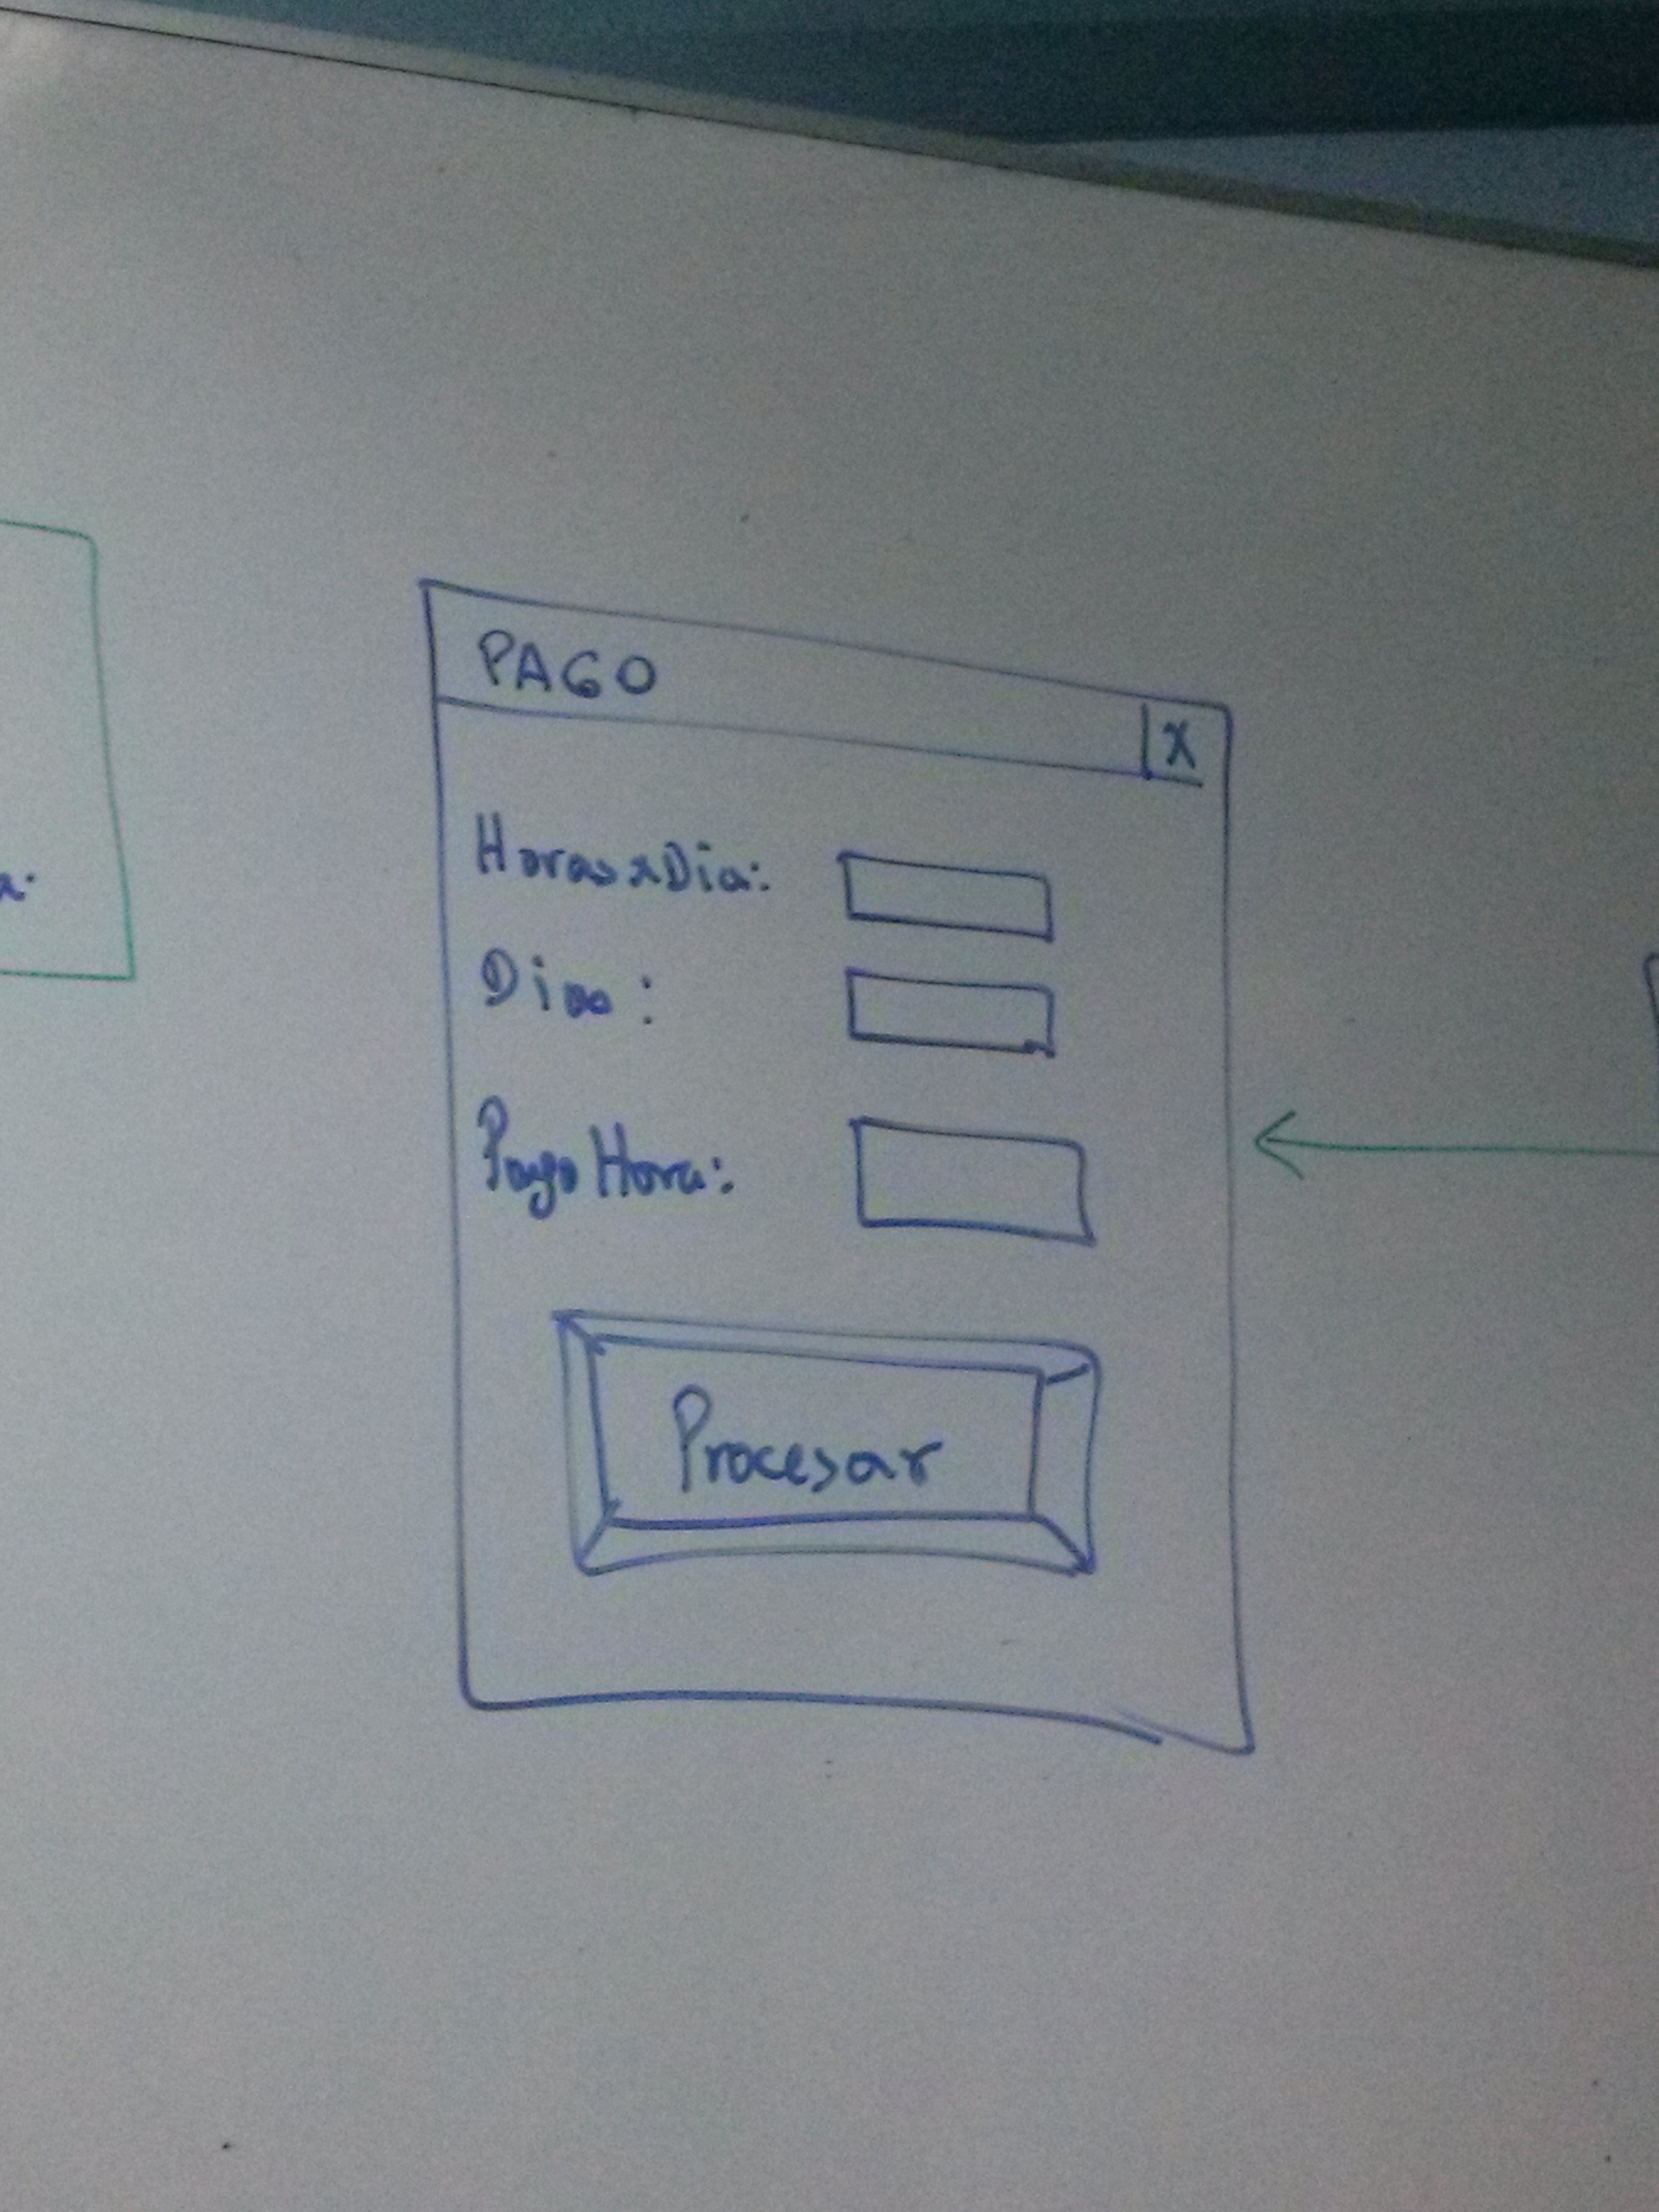 PAGO
X
Horas x Dia:
Dias:
Pago Hora:
Procesar